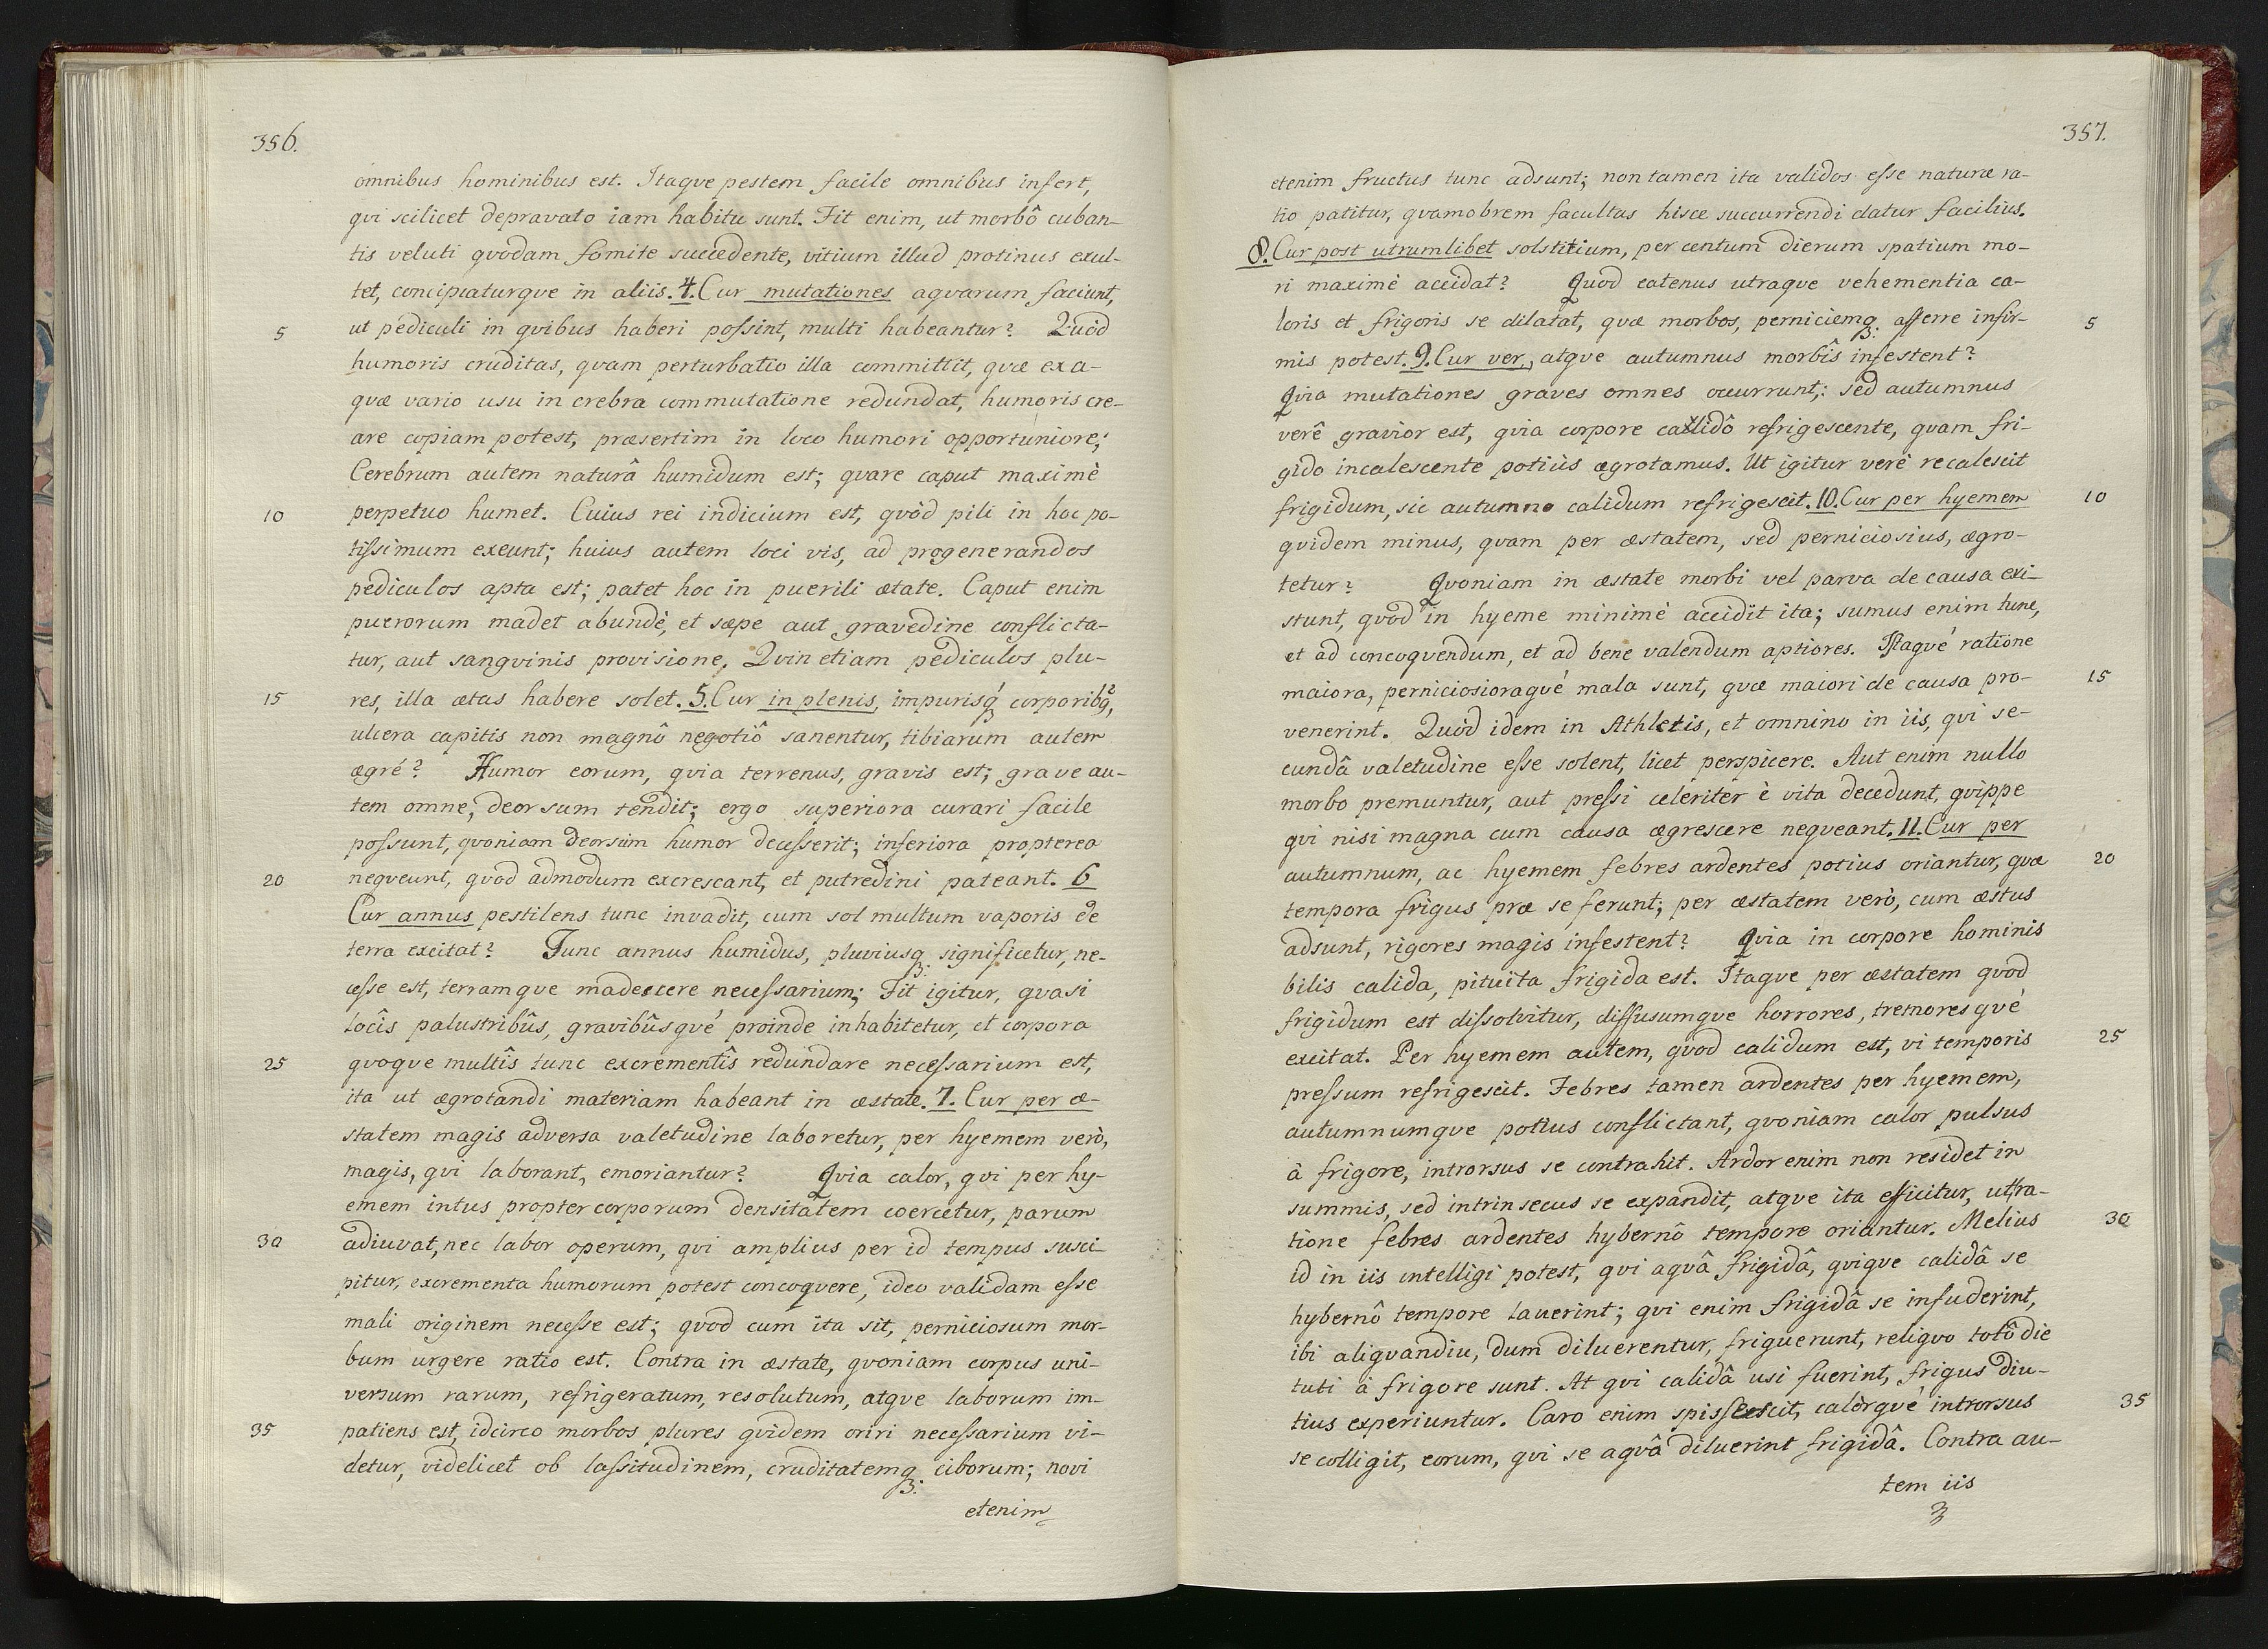 356.
omnibus hominibus est. Itaqve pestem facile omnibus infert,
qvi scilicet depravato iam habitu sunt. Fit enim, ut morbô cuban-
tis veluti qvodam fomite succedente, vitium illud protinus exul-
tet, concipiaturqve in aliis. 4. Cur mutationes aqvarum faciunt,
5 ut pediculi in qvibus haberi possint, multi habeantur? Qvòd
humoris cruditas, qvam perturbatio illa committit, qvæ ex a-
qvæ vario usu in crebra commutatione redundat, humoris cre-
are copiam potest, præsertim in loco humori opportuniore;
Cerebrum autem naturâ humidum est; qvare caput maximè
10 perpetuo humet. Cuius rei indicium est, qvòd pili in hoc po-
tissimum exeunt; huius autem loci vis, ad progenerandos
pediculos apta est; patet hoc in puerili ætate. Caput enim
puerorum madet abundè, et sæpe aut gravedine conflicta-
tur, aut sangvinis provisione, Qvin etiam pediculos plu-
15 res, illa ætas habere solet. 5. Cur in plenis, impurisq́ corporibq,
ulcera capitis non magnô negotiô sanentur, tibiarum autem
ægré? Humor eorum, qvia terrenus, gravis est; grave au-
tem omne, deorsum tendit; ergo superiora curari facile
possunt, qvoniam deorsùm humor decesserit; inferiora propterea
20 neqveunt, qvod admodum excrescant, et putredini pateant. 6
Cur annus pestilens tunc invadit, cum sol multum vaporis de
terra excitat? Tunc annus humidus, pluviusq; significetur, ne-
cesse est, terramqve madescere necessarium; Fit igitur, qvasi
locîs palustribûs, gravibûsqvé proinde inhabitetur, et corpora
25 qvoqve multîs tunc excrementîs redundare necessarium est,
ita ut ægrotandi materiam habeant in æstate. 7. Cur per æ-
statem magis adversa valetudine laboretur, per hyemem verò,
magis, qvi laborant, emoriantur? Qvia calor, qvi per hy-
emem intus propter corporum densitatem coercetur, parum
30 adiuvat, nec labor operum, qvi amplius per id tempus susci-
pitur, excrementa humorum potest concoqvere, ideo validam esse
mali originem necesse est; qvod cum ita sit, perniciosum mor-
bum urgere ratio est. Contra in æstate, qvoniam corpus uni-
versum rarum, refrigeratum, resolutum, atqve laborum im-
35 patiens est, idcirco morbos plures qvidem oriri necessarium vi-
detur, videlicet ob lassitudinem, cruditatemq; ciborum; novi
etenim
357.
etenim fructus tunc adsunt; non tamen ita validos esse naturæ ra-
tio patitur, qvamobrem facultas hisce succurrendi datur facilius.
8. Cur post utrumlibet solstitium, per centum dierum spatium mo-
ri maximè accidat? Qvod eatenus utraqve vehementia ca-
5 loris et frigoris se dilatat, qvæ morbos, perniciemq; afferre infir-
mis potest. 9. Cur ver, atqve autumnus morbîs infestent?
Qvia mutationes graves omnes occurrunt,: sed autumnus
verê gravior est, qvia corpore calidô refrigescente, qvam fri-
gido incalescente potiùs ægrotamus. Ut igitur verè recalescit
10 frigidum, sic autumno calidum refrigescit. 10. Cur per hyemem
qvidem minus, qvam per æstatem, sed perniciosius, ægro-
tetur? Qvoniam in æstate morbi vel parva de causa exi-
stunt, qvod in hyeme minimè accidit ita; sumus enim tunc,
et ad concoqvendum, et ad bene valendum aptiores. Itaqvé ratione
15 maiora, perniciosioraqvé mala sunt, qvæ maiori de causa pro-
venerint. Qvòd idem in Athletis, et omnino in iis, qvi se-
cundâ valetudine esse solent, licet perspicere. Aut enim nullo
morbo premuntur, aut pressi celeriter è vita decedunt, qvippe
qvi nisi magna cum causa ægrescere neqveant. 11. Cur per
20 autumnum, ac hyemem febres ardentes potius oriantur, qvæ
tempora frigus præ se ferunt; per æstatem verò, cum æstus
adsunt, rigores magis infestent? Qvia in corpore hominis
bilis calida, pituita frigida est. Itaqve per æstatem qvod
frigidum est dissolvitur, diffusumqve horrores, tremoresqvé
25 excitat. Per hyemem autem, qvod calidum est, vi temporis
pressum refrigescit. Febres tamen ardentes per hyemem,
autumnumqve potius conflictant, qvoniam calor pulsus
à frigore, introrsus se contrahit. Ardor enim non residet in
summis, sed intrinsecus se expandit, atqve ita efficitur, ut ra-
30 tione febres ardentes hybernô tempore oriantur. Melius
id in iis intelligi potest, qvi aqvâ frigidâ, qviqve calidâ se
hybernô tempore lauerint; qvi enim frigidâ se infuderint,
ibi aliqvandiu, dum diluerentur, friguerunt, reliqvo totô die
tuti à frigore sunt. At qvi calidâ usi fuerint, frigus diu-
35 tius experiuntur. Caro enim spissescit, calòrqvé introrsus
se colligit, eorum, qvi se aqvâ diluerint frigidâ. Contra au-
tem iis